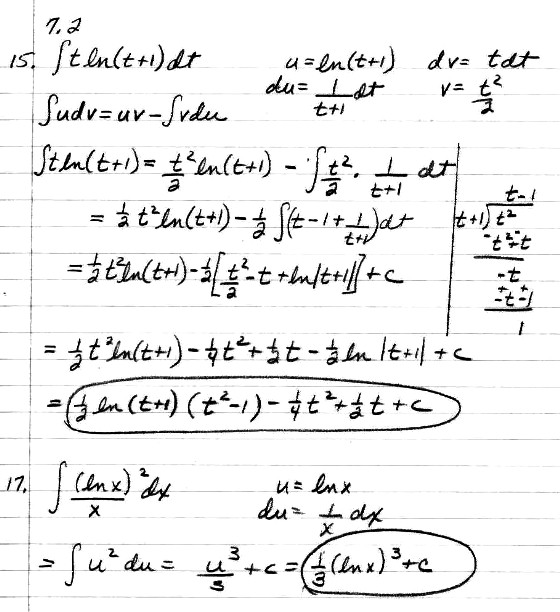 7.2
15. ∫t ln(t+1)dt u = ln(t+1) dv = t dt
du = 1/(t+1) dt v = t²/2
∫u dv = uv − ∫v du
∫t ln(t+1) = t²/2 ln(t+1) − ∫ t²/2 · 1/(t+1) dt
= ½ t² ln(t+1) − ½ ∫(t−1+ 1/(t+1))dt
= ½ t² ln(t+1) − ½[t²/2 − t + ln|t+1|] + c
t−1
t+1) t²
-t²+-t
-t
+-t+-1
1
= ½ t² ln(t+1) − ¼t² + ½t − ½ ln |t+1| + c
= ½ ln(t+1) (t²−1) − ¼t² + ½t + c
17. ∫ (ln x)²/x dx u = ln x
du = 1/x dx
= ∫ u² du = u³/3 + c = ⅓(ln x)³ + c